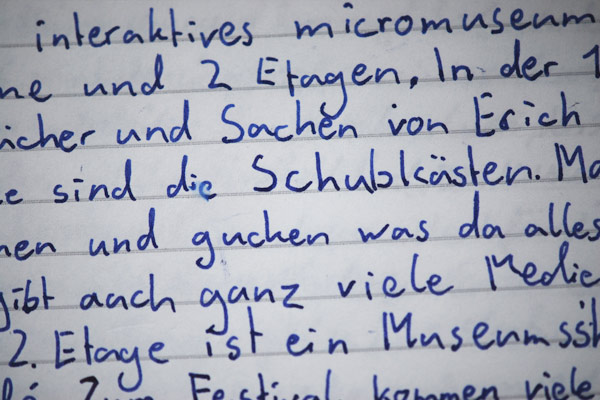 interaktives micromuseum
ne und 2 Etagen. In der 1
icher und Sachen von Erich
e sind die Schublkästen. Ma
nen und gucken was da alles
gibt auch ganz viele Medie
2. Etage ist ein Museumssh
Zum Festival kommen viele